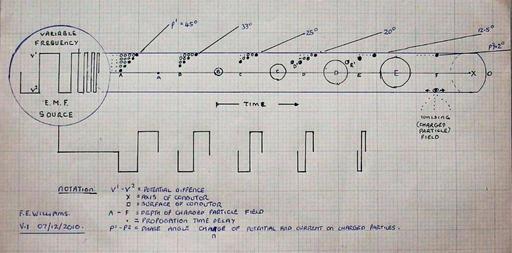 VARIABLE
FREQUENCY
V'
V²
E.M.F.
SOURCE
P' = 45°
33°
25°
20°
12.5°
P²2°
A
A
B
B
C
C
D
D
E
E
F
X
O
TIME
IONISING
(CHARGED
PARTICLE)
FIELD
NOTATION
V' - V² = POTENTIAL DIFFENCE
X = AXIS OF CONDUTOR
O = SURFACE OF CONDUTOR
A - F = DEPTH OF CHARGED PARTICLE FIELD
= PROPOGATION TIME DELAY
P' - P² = PHASE ANGLE CHANGE OF POTENTIAL AND CURRENT ON CHARGED PARTICLES.
F.E. WILLIAMS.
V.1 07/12/2010.